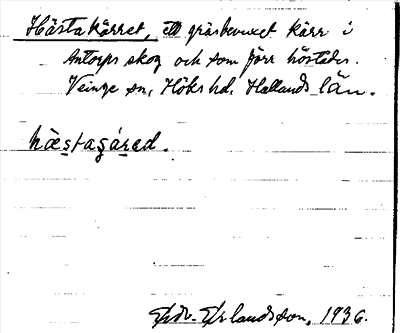 Hästakärret, ett gräsbevuxet kärr i
Antorps skog och som förr höstades.
Veinge sn, Höks hd. Hallands län.
hæstaçárad.
Edv. Erlandsson, 1936.